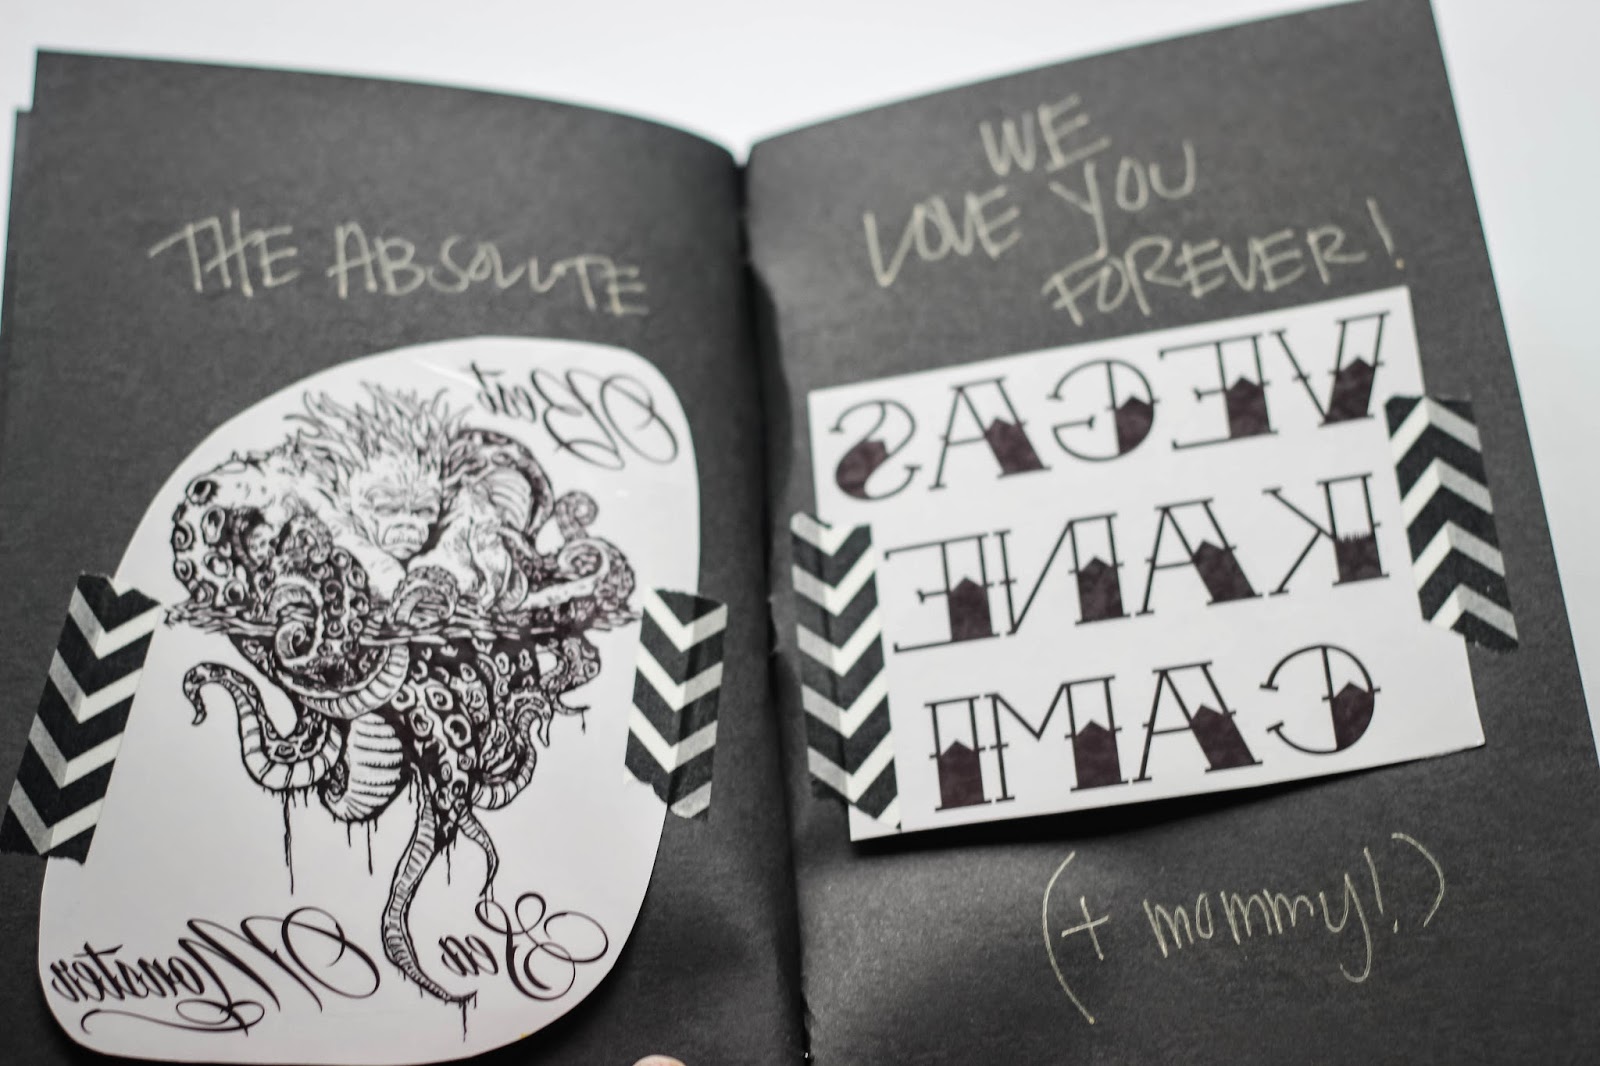 THE ABSOLUTE
Best
Sea Monster
WE
LOVE YOU
FOREVER!
VEGAS
KANE
CAMI
(+ mommy!)